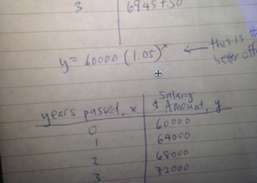 3 6945+50
y = 60000 (1.05)^x
better off
years passed, x Salary $ Amount, y
0 60000
1 64000
2 68000
3 72000